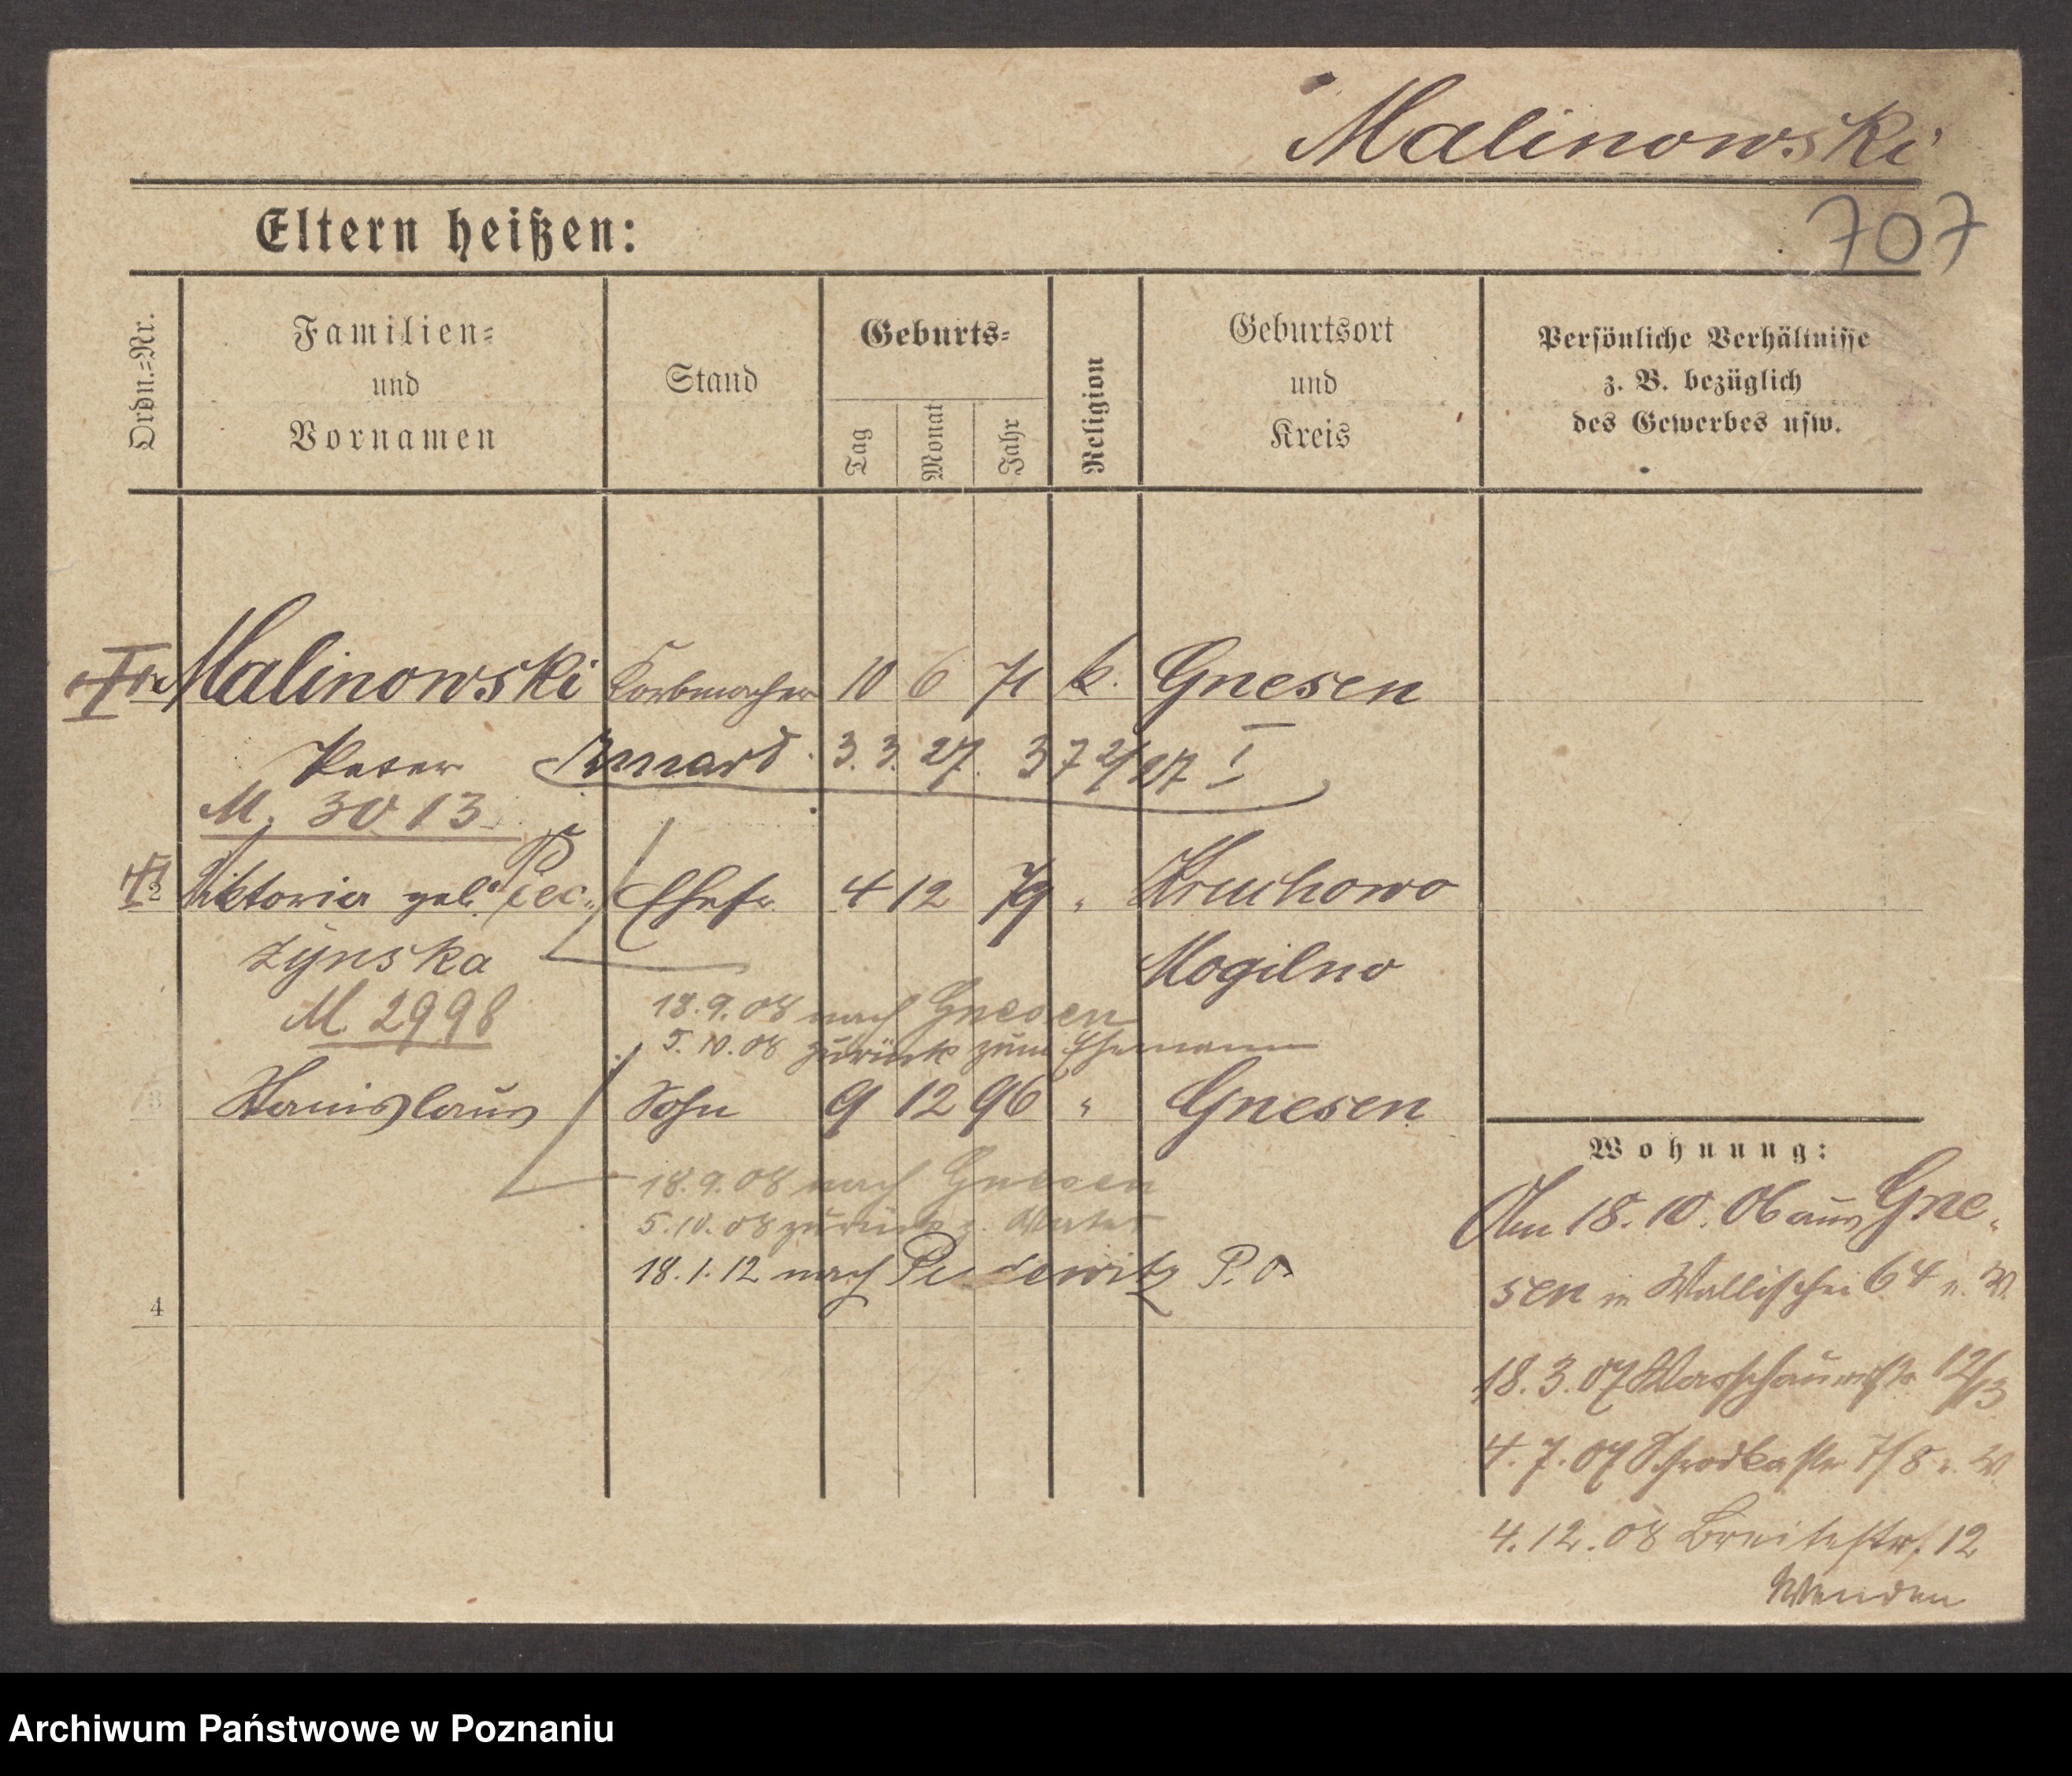 Malinowski
707
Eltern heißen:
Ordn.-Nr.
Familien-
und
Vornamen
Stand
Geburts-
Tag
Monat
Jahr
Religion
Geburtsort
und
Kreis
Persönliche Verhältnisse
z. B. bezüglich
des Gewerbes usw.
Malinowski Korbmacher 10 6 71 k. Gnesen
Peter 3. 3. 27. 372/27 I
M. 3013
2 Viktoria geb. Pec- Ehefr. 4 12 79 " Kruchowo
zynska Mogilno
M 2998
18.9.08 nach Gnesen
5.10.08 zurück zum Ehemann
3 Stanislaus Sohn 9 12 96 " Gnesen
18.9.08 nach Gnesen
5.10.08 zurück z. Vater
18.1.12 nach Pudewitz P. O.
4
Wohnung:
Am 18.10.06 aus Gne-
sen in Wallischei 64 n. W.
18.3.07 Warschauerstr 12/13
4.7.07 Schrodkastr 7/8 n. W.
4.12.08 Breitestr. 12
Wenden
Archiwum Państwowe w Poznaniu